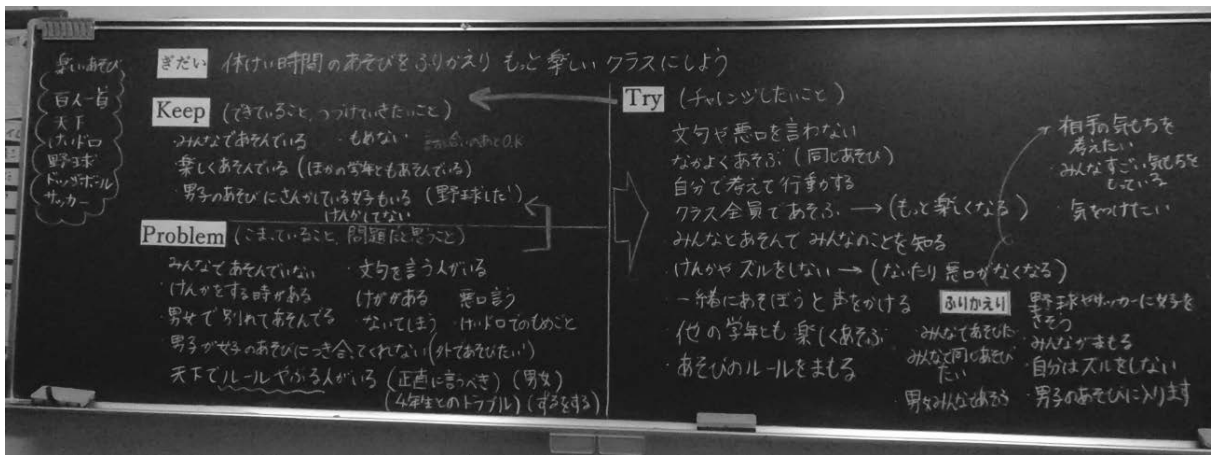 楽しいあそび
百人一首
天下
けいドロ
野球
ドッヂボール
サッカー
ぎだい 休けい時間のあそびをふりかえり もっと楽しい クラスにしよう
Keep (できていること、つづけていきたいこと)
・みんなであそんでいる ・もめない 話し合いのあとO.K
楽しくあそんでいる (ほかの学年ともあそんでいる)
・男子のあそびにさんかしている女子もいる (野球した)
けんかしてない
Problem (こまっていること、問題だと思うこと)
みんなであそんでいない ・文句を言う人がいる
・けんかをする時がある けががある 悪口言う
・男女で別れてあそんでる ・ないてしまう ・けいドロでのもめごと
・男子が女子のあそびにつき合ってくれない (外であそびたい)
天下でルールやぶる人がいる (正直に言うべき) (男女)
(4年生とのトラブル) (ずるをする)
Try (チャレンジしたいこと)
文句や悪口を言わない
なかよくあそぶ (同じあそび)
自分で考えて行動する
クラス全員であそぶ → (もっと楽しくなる)
・みんなとあそんで みんなのことを知る
・けんかや ズルをしない → (ないたり 悪口がなくなる)
・一緒にあそぼうと声をかける
・他の学年とも 楽しくあそぶ
・あそびのルールをまもる
・相手の気もちを
考えたい
・みんなすごい気もちを
もっている
・気をつけたい
ふりかえり
みんなであそびた
みんなで同じあそび
たい
・男女みんなであそぶ
野球やサッカーに女子を
さそう
・みんながまもる
・自分はズルをしない
・男子のあそびに入ります